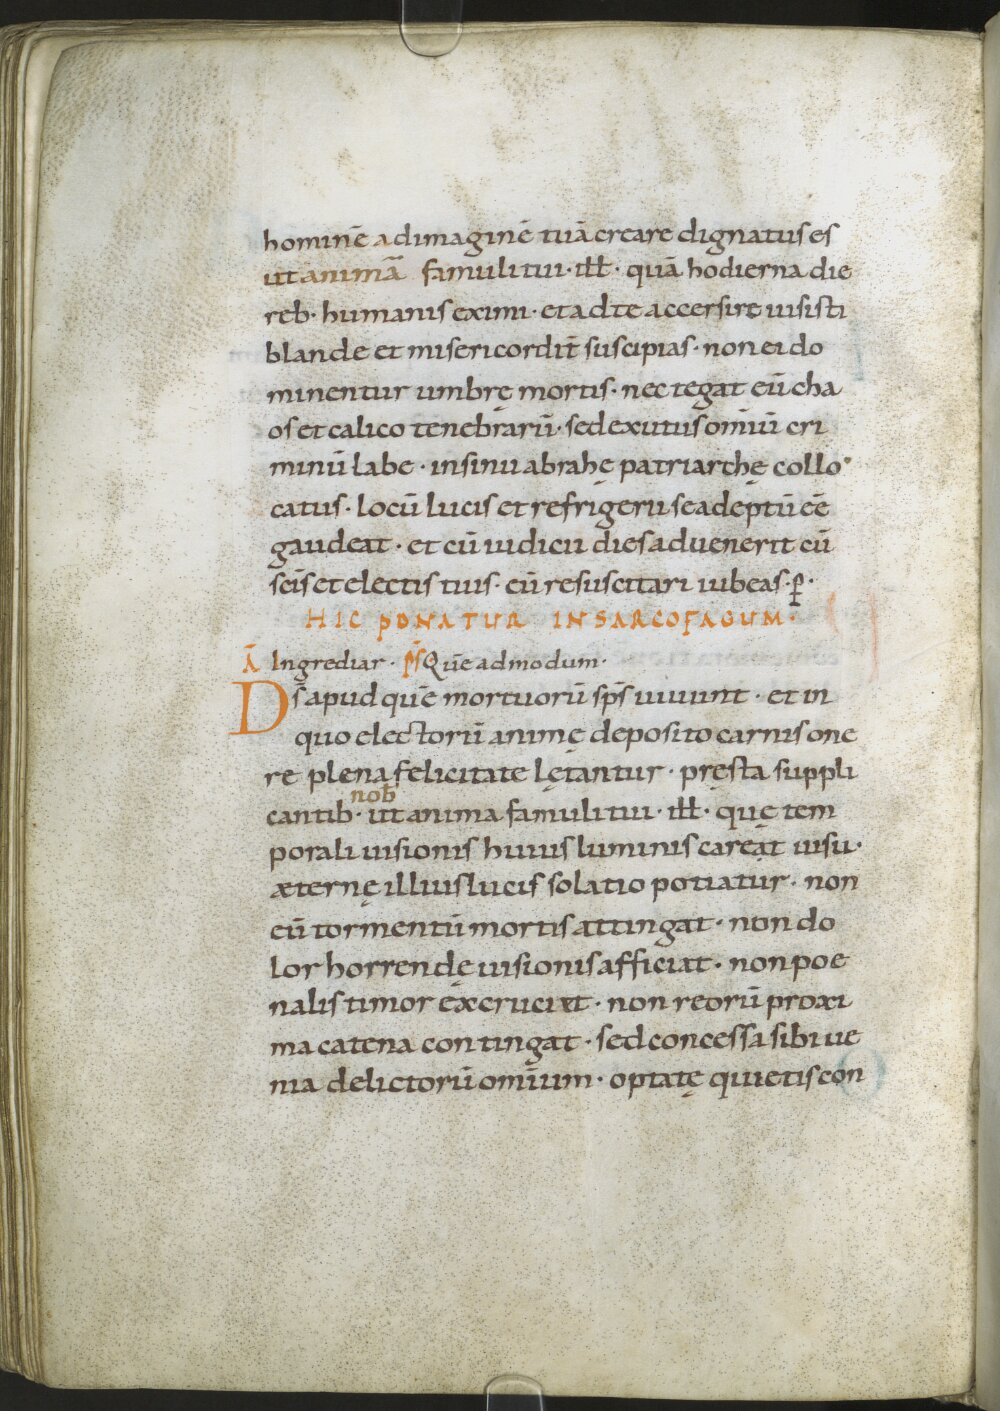 hominē ad imaginē tuā creare dignatus es
ut animā famuli tui · ill̄ · quā hodierna die
reb· humanis eximi · et ad te accersire iusisti
blande et misericordit̄ suscipias · non ei do
minentur umbrę mortis · nec tegat eū cha
os et caligo tenebrarū · sed exutus omīū cri
minū labe · in sinu abrahę patriarchę collo
catus · locū lucis et refrigerii se adeptū eē
gaudeat · et cū iudicii dies aduenerit cū
sc̄is et electis tuis · eū resuscitari iubeas · p̄ ·
HIC PONATUR IN SARCOFAGUM ·
Ā Ingrediar · P̄S Quē admodum ·
D̄s apud quē mortuorū sp̄s uiuunt · et in
quo electorū animę deposito carnis one
re plena felicitate lętantur · pręsta suppli
nob̄
cantib· ut anima famuli tui · ill̄ · quę tem
porali uisionis huius luminis careat uisu ·
æternę illius lucis solatio potiatur · non
eū tormentū mortis attingat · non do
lor horrendę uisionis afficiat · non poe
nalis timor excruciet · non reorū proxi
ma catena contingat · sed concessa sibi ue
nia delictorū omīum · optatę quietis con